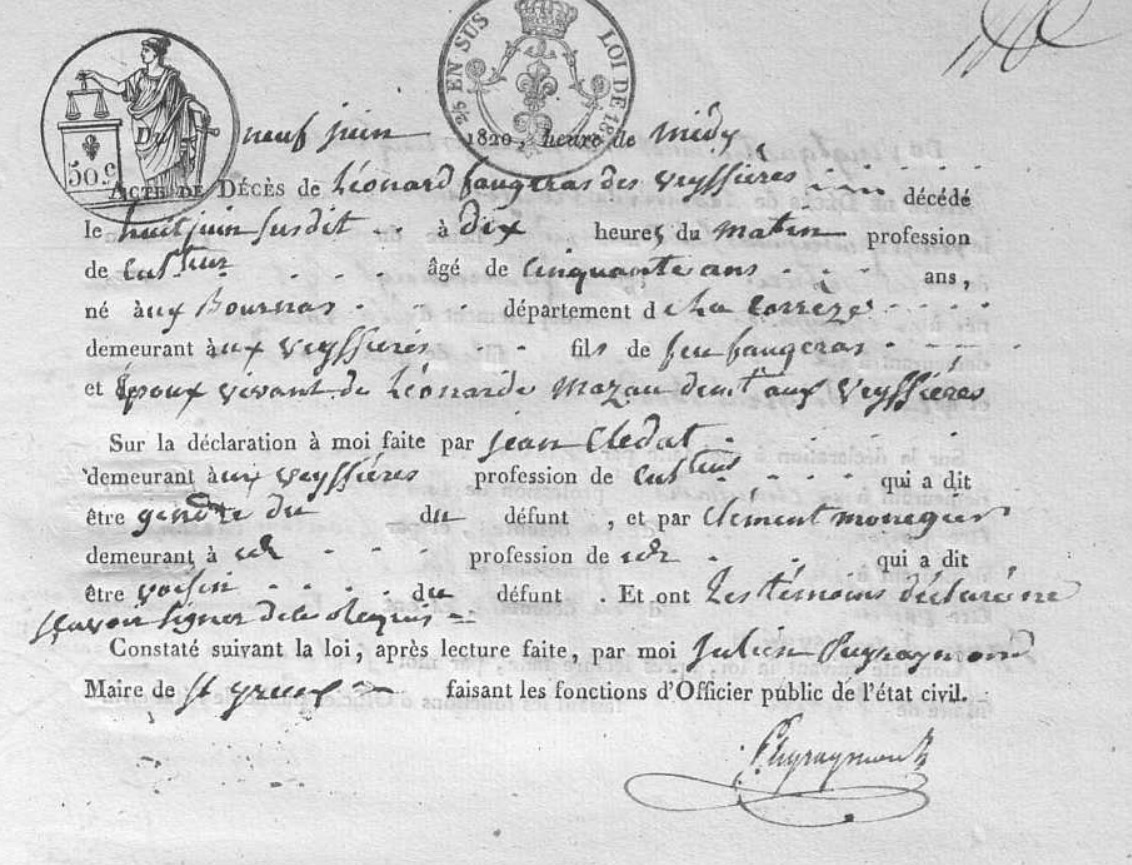 2/5 EN SUS LOI DE 18
50c
Du neuf juin 1820, heure de midy
ACTE DE DÉCÈS de Léonard faugeras des veyssières décédé
le huit juin susdit à dix heures du matin profession
de culteur âgé de cinquante ans ans,
né à ux Bournas département d e la Correze
demeurant à ux veyssieres fils de feu faugeras
et Epoux vivant de Léonarde Mazau demt aux veyssieres
Sur la déclaration à moi faite par jean Cledat
demeurant à ux veyssiéres profession de culteur qui a dit
être gendre du du défunt , et par Clement
demeurant à idm profession de idm qui a dit
être voisin du défunt . Et ont Les témoins déclaré ne
sçavoir signer de ce requis
Constaté suivant la loi, après lecture faite, par moi Julien Puyraymond
Maire de St faisant les fonctions d'Officier public de l'état civil.
Puyraymond